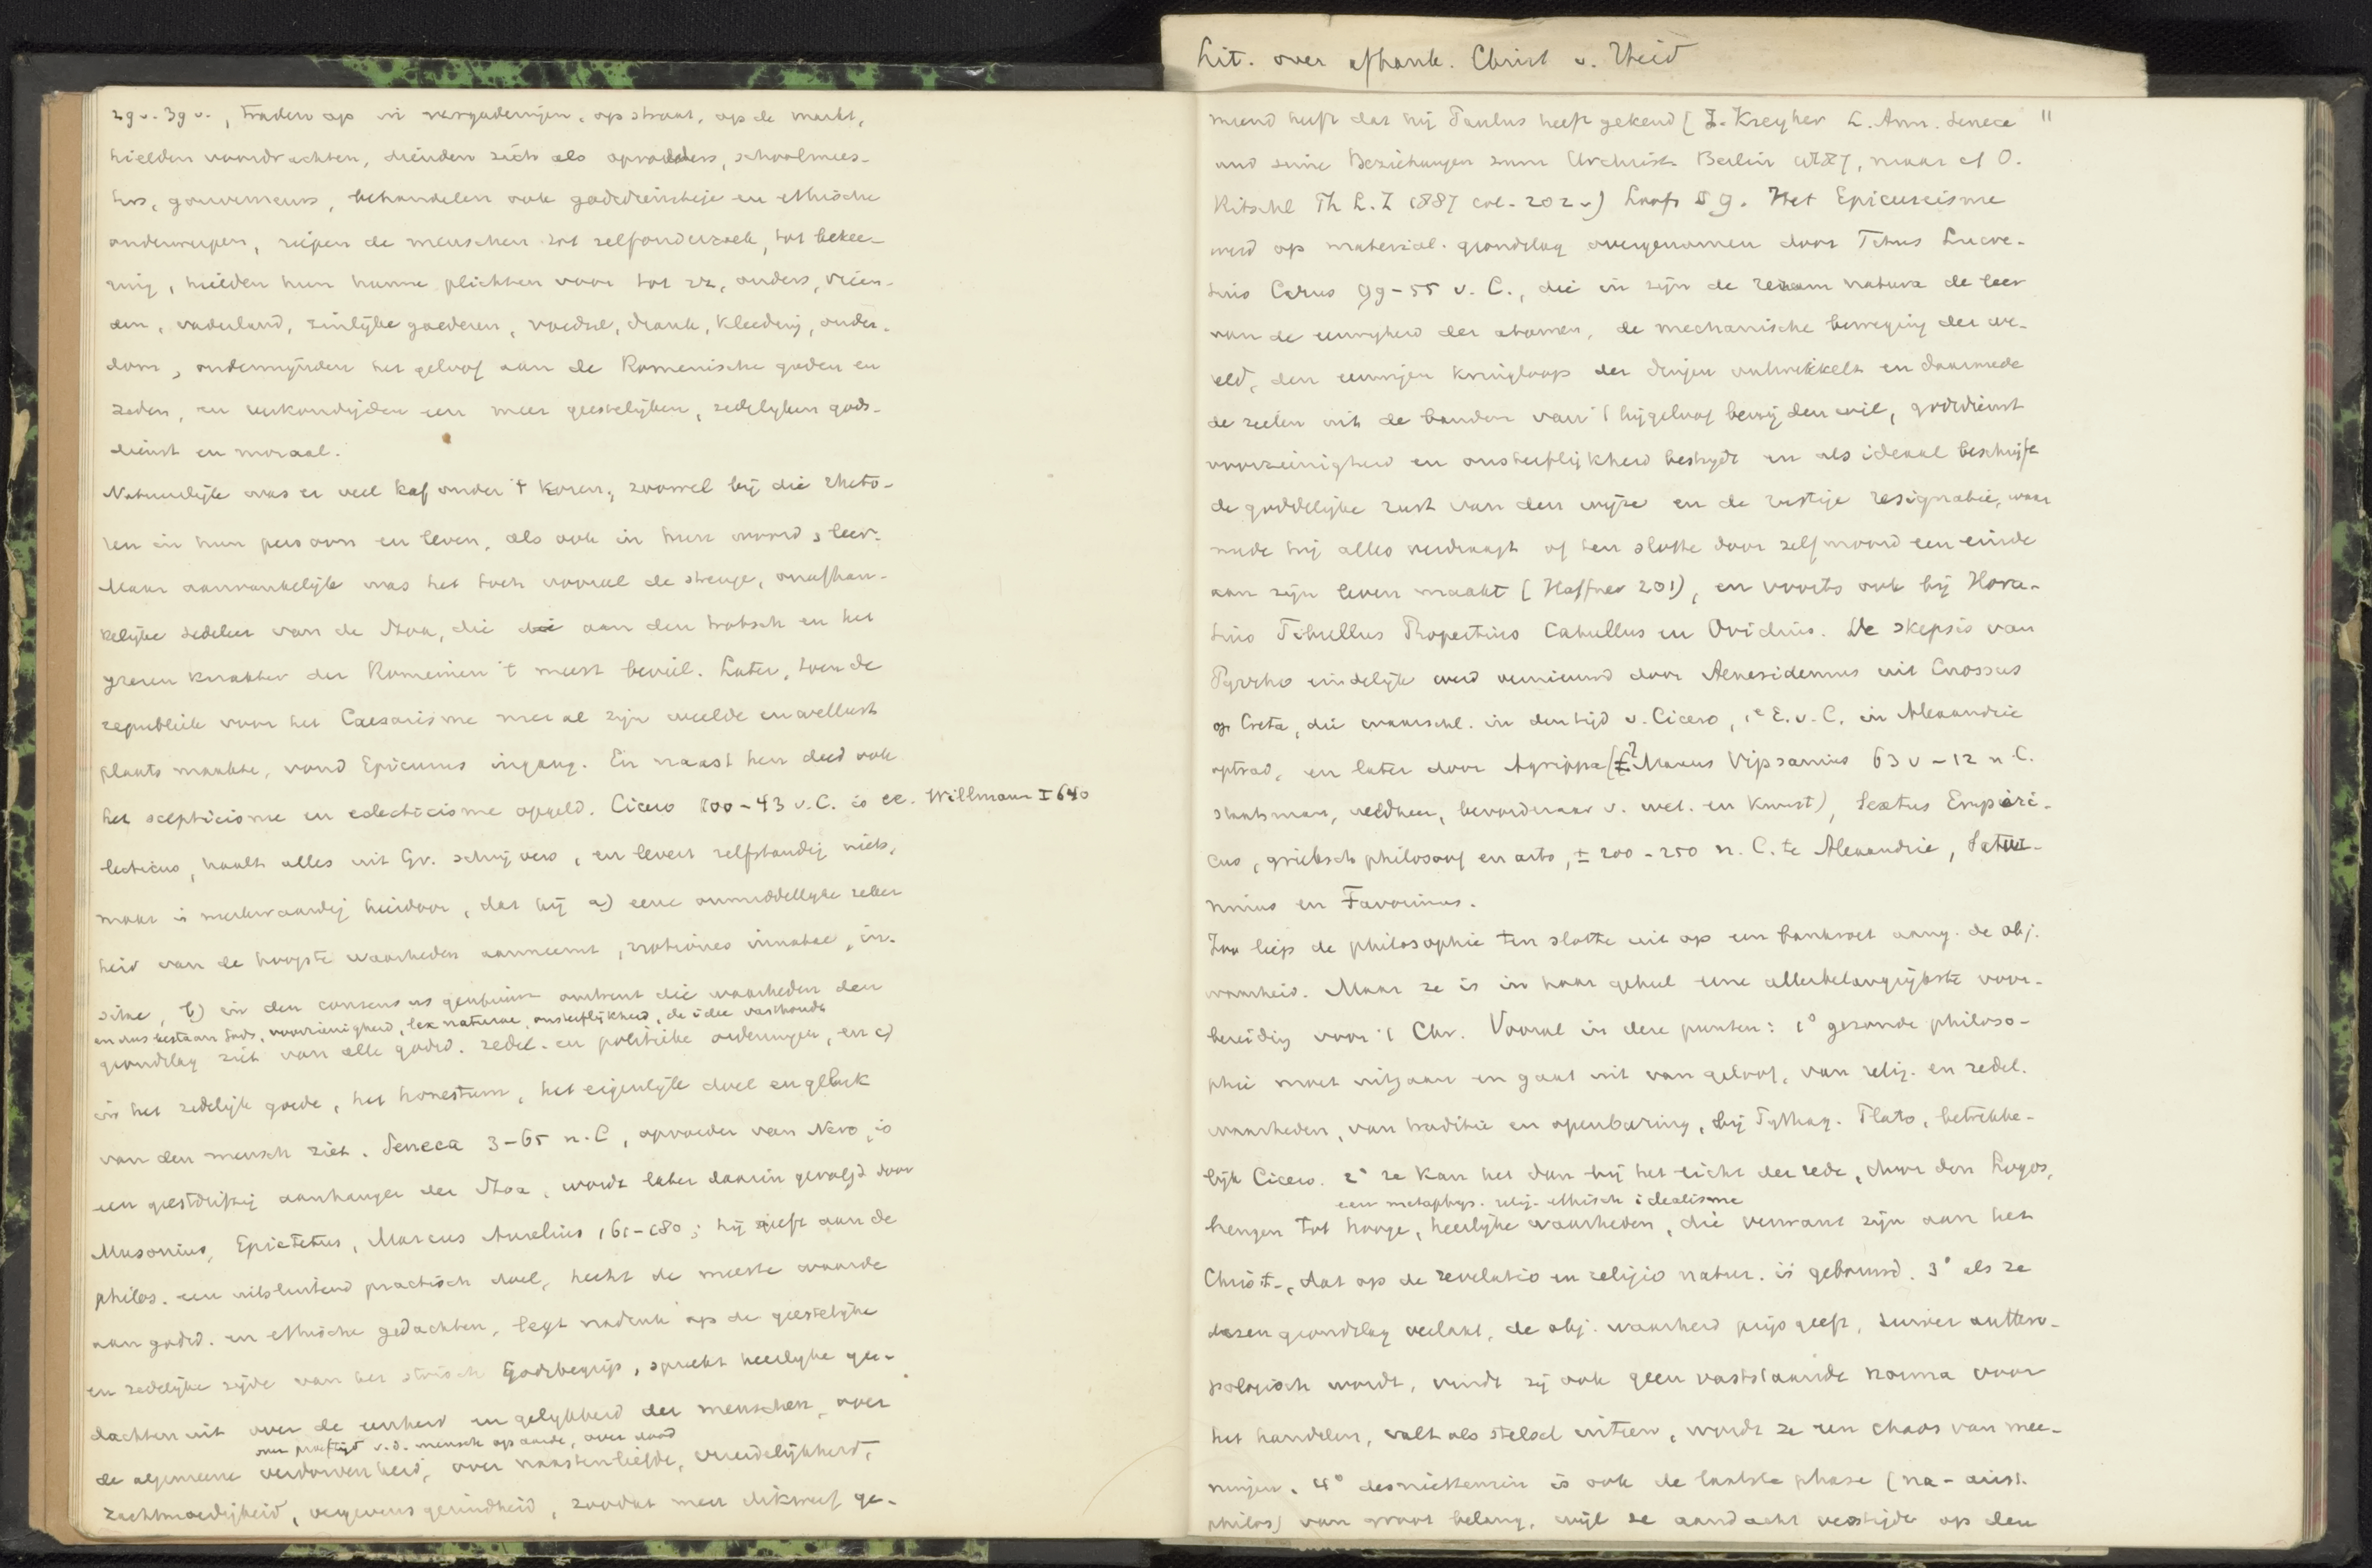 Lit. over afhank. Christ v. Heid
2g v. 3g v., traden op in vergaderingen, op straat, op de markt,
hielden voordrachten, dienden zich als opvoeders, schoolmees-
ters, gouverneurs, behandelen ook godsdienstige en ethische
onderwerpen, riepen de menschen tot zelfonderzoek, tot bekee-
ring, hielden hun hunne plichten voor tot ouders, vrien-
den, vaderland, zinlijke goederen, voedsel, drank, kleeding, ouder-
dom, ondermijnden het geloof aan de Romeinische goden en
zeden, en verkondigden een meer geestelijken, zedelijken gods-
dienst en moraal.
Natuurlijk was er veel kaf onder 't koren, zoowel bij die rheto-
ren in hun persoon en leven, als ook in hun woord & leer.
Maar aanvankelijk was het toch vooral de strenge, onafhan-
kelijke zedeleer van de Stoa, die aan den trotsch en het
ijzeren karakter der Romeinen 't meest beviel. Later, toen de
republiek voor het Caesarisme met al zijn weelde en wellust
plaats maakte, vond Epicurus ingang. En naast hen deed ook
het scepticisme en eclecticisme opgeld. Cicero 100-43 v.C. is ec- Willmann I 640
lecticus, haalt alles uit Gr. schrijvers, en levert zelfstandig niets,
maar is merkwaardig hierdoor, dat hij a) eene onmiddellijke zeker
heid van de hoogste waarheden aanneemt, notiones innatae, in-
sitae, b) in den consensus gentium omtrent die waarheden den
en dus bestaan Gods, voorzienigheid, lex naturae, onsterflijkheid, de idee vasthoudt
grondslag ziet van alle godsd. zedel. en politieke ordeningen, en c)
in het zedelijk goede, het honestum, het eigenlijk doel en geluk
van den mensch ziet. Seneca 3-65 n.C, opvoeder van Nero, is
een geestdriftig aanhanger der Stoa, wordt later daarin gevolgd door
Musonius, Epictetus, Marcus Aurelius 161-180; hij geeft aan de
philos. een uitsluitend practisch doel, hecht de meeste waarde
aan godsd. en ethische gedachten, legt nadruk op de geestelijke
en zedelijke zijde van het stoisch Godsbegrip, spreekt heerlijke ge-
dachten uit over de eenheid en gelijkheid der menschen, over
over proeftijd v.d. mensch op aarde, over dood
de algemeene verdorvenheid, over naastenliefde, vriendelijkheid,
zachtmoedigheid, vergevensgezindheid, zoodat men dikwerf ge-
meend heeft dat hij Paulus heeft gekend (J. Kreyher L. Ann. Seneca "
und seine Beziehungen zum Urchrist. Berlin 1887, maar cf O.
Ritschl Th L.Z 1887 col. 202 v.) Loofs § 9. Het Epicureisme
werd op material. grondslag overgenomen door Titus Lucre-
tius Carus 99-55 v.C., die in zijn de rerum natura de leer
van de eeuwigheid der atomen, de mechanische beweging der we-
reld, den eeuwigen kringloop der dingen ontwikkelt en daarmede
de zielen uit de banden van 't bijgeloof bevrijden wil, godsdienst
voorzienigheid en onsterflijkheid bestrijdt en als ideaal beschrijft
de goddelijke rust van den wijze en de rustige resignatie, waar
mede hij alles verdraagt of ten slotte door zelfmoord een einde
aan zijn leven maakt (Haffner 201), en voorts ook bij Hora-
tius Tibullus Propertius Catullus en Ovidius. De skepsis van
Pyrrho eindelijk werd vernieuwd door Aenesidemus uit Cnossus
op Creta, die waarschl. in den tijd v. Cicero, 1e E.v.C. in Alexandrie
optrad, en later door Agrippa (? Marcus Vipsanius 63 v - 12 n C.
staatsman, veldheer, bevorderaar v. wet. en kunst), Sextus Empiri-
cus, grieksch philosoof en arts, ± 200-250 n.C. te Alexandrie, Satur-
ninus en Favorinus.
Zoo liep de philosophie ten slotte uit op een bankroet aang. de obj.
waarheid. Maar ze is in haar geheel eene allerbelangrijkste voor-
bereiding voor 't Chr. Vooral in deze punten: 1° gezonde philoso-
phie moet uitgaan en gaat uit van geloof, van relig. en zedel.
waarheden, van traditie en openbaring, bij Pythag. Plato, betrekke-
lijk Cicero. 2° ze kan het dan bij het licht der rede, door den Logos,
een metaphys. relig. ethisch idealisme
brengen tot hooge, heerlijke waarheden, die verwant zijn aan het
Christ., dat op de revelatio en religio natur. is gebouwd. 3° als ze
dezen grondslag verlaat, de obj. waarheid prijs geeft, zuiver anthro-
pologisch wordt, vindt zij ook geen vaststaande norma voor
het handelen, valt als stelsel uiteen, wordt ze een chaos van mee-
ningen. 4° desniettemin is ook de laatste phase (na-arist.
philos) van groot belang, wijl ze aandacht vestigde op den